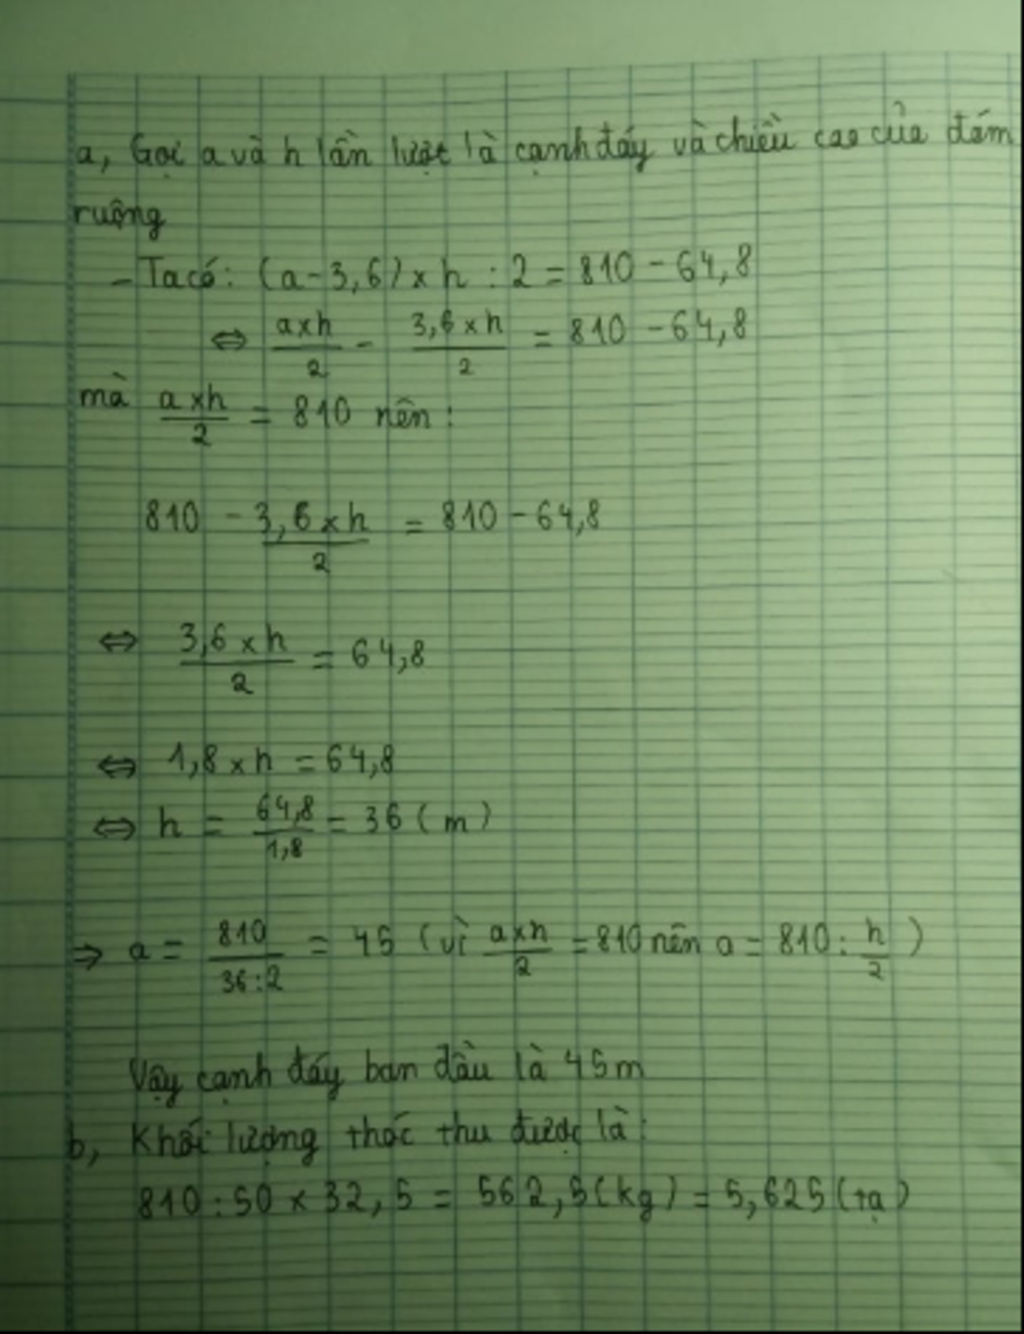 a, Gọi a và h lần lượt là cạnh đáy và chiều cao của đám
ruộng
- Ta có: (a - 3,6) x h : 2 = 810 - 64,8
⇔ (a x h)/2 - (3,6 x h)/2 = 810 - 64,8
mà (a x h)/2 = 810 nên:
810 - (3,6 x h)/2 = 810 - 64,8
⇔ (3,6 x h)/2 = 64,8
⇔ 1,8 x h = 64,8
⇔ h = 64,8/1,8 = 36 (m)
⇒ a = 810/(36:2) = 45 (vì (a x h)/2 = 810 nên a = 810 : h/2)
Vậy cạnh đáy ban đầu là 45m
b, Khối lượng thóc thu được là:
810 : 50 x 32,5 = 562,5 (kg) = 5,625 (tạ)